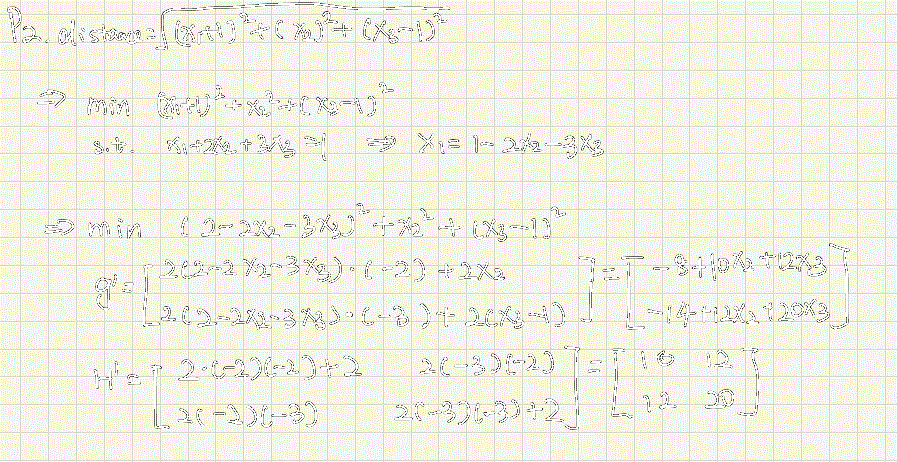 P2. distance = √((x₁+1)² + (x₂)² + (x₃-1)²)
⇒ min (x₁+1)² + x₂² + (x₃-1)²
s.t. x₁+2x₂+3x₃ = 1 ⇒ x₁ = 1-2x₂-3x₃
⇒ min (2-2x₂-3x₃)² + x₂² + (x₃-1)²
g = [2(2-2x₂-3x₃)·(-2) + 2x₂ ; 2(2-2x₂-3x₃)·(-3) + 2(x₃-1)] = [-8+10x₂+12x₃ ; -14+12x₂+20x₃]
H = [2·(-2)(-2)+2 2(-3)(-2) ; 2(-2)(-3) 2(-3)(-3)+2] = [10 12 ; 12 20]